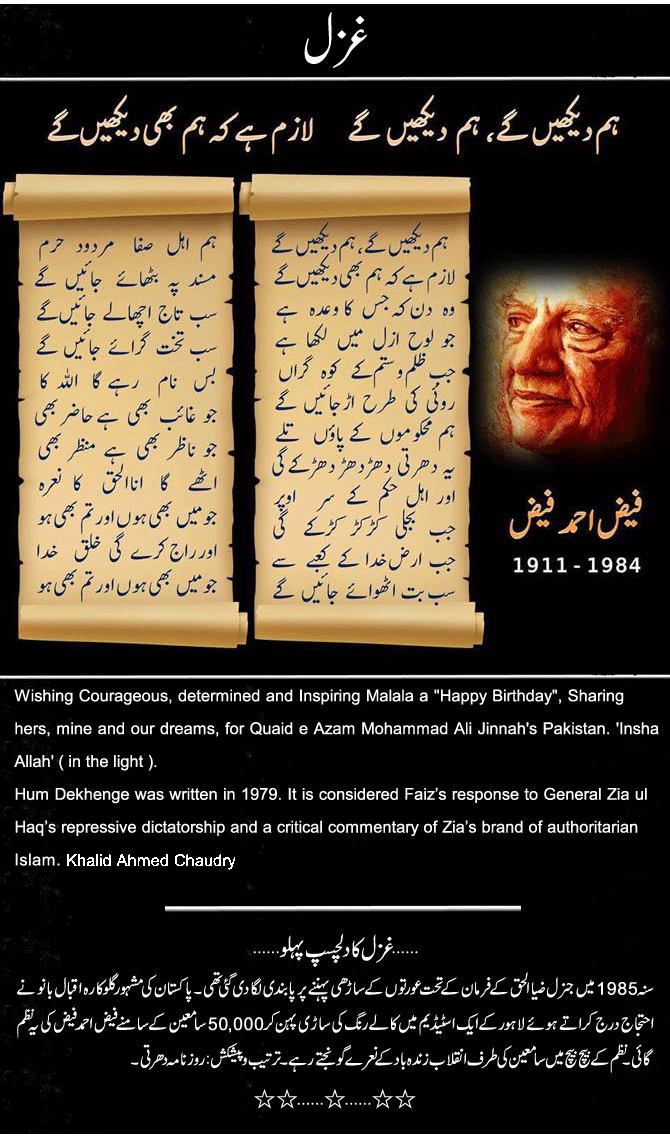 غزل
ہم دیکھیں گے، ہم دیکھیں گے لازم ہے کہ ہم بھی دیکھیں گے
ہم دیکھیں گے، ہم دیکھیں گے
لازم ہے کہ ہم بھی دیکھیں گے
وہ دن کہ جس کا وعدہ ہے
جو لوح ازل میں لکھا ہے
جب ظلم و ستم کے کوہ گراں
روئی کی طرح اڑ جائیں گے
ہم محکوموں کے پاؤں تلے
یہ دھرتی دھڑ دھڑ دھڑکے گی
اور اہل حکم کے سر اوپر
جب بجلی کڑ کڑ کڑکے گی
جب ارض خدا کے کعبے سے
سب بت اٹھوائے جائیں گے
ہم اہل صفا مردود حرم
مسند پہ بٹھائے جائیں گے
سب تاج اچھالے جائیں گے
سب تخت گرائے جائیں گے
بس نام رہے گا اللہ کا
جو غائب بھی ہے حاضر بھی
جو ناظر بھی ہے منظر بھی
اٹھے گا اناالحق کا نعرہ
جو میں بھی ہوں اور تم بھی ہو
اور راج کرے گی خلق خدا
جو میں بھی ہوں اور تم بھی ہو
فیض احمد فیض
1911 - 1984
Wishing Courageous, determined and Inspiring Malala a "Happy Birthday", Sharing
hers, mine and our dreams, for Quaid e Azam Mohammad Ali Jinnah's Pakistan. 'Insha
Allah' ( in the light ).
Hum Dekhenge was written in 1979. It is considered Faiz's response to General Zia ul
Haq's repressive dictatorship and a critical commentary of Zia's brand of authoritarian
Islam. Khalid Ahmed Chaudry
......غزل کا دلچسپ پہلو......
سنہ 1985 میں جنرل ضیاالحق کے فرمان کے تحت عورتوں کے ساڑھی پہننے پر پابندی لگا دی گئی تھی۔ پاکستان کی مشہور گلوکارہ اقبال بانو نے
احتجاج درج کراتے ہوئے لاہور کے ایک اسٹیڈیم میں کالے رنگ کی ساڑی پہن کر 50,000 سامعین کے سامنے فیض احمد فیض کی یہ نظم
گائی۔ نظم کے بیچ بیچ میں سامعین کی طرف انقلاب زندہ باد کے نعرے گونجتے رہے۔ ترتیب و پیشکش: روزنامہ دھرتی۔
☆☆......☆......☆☆